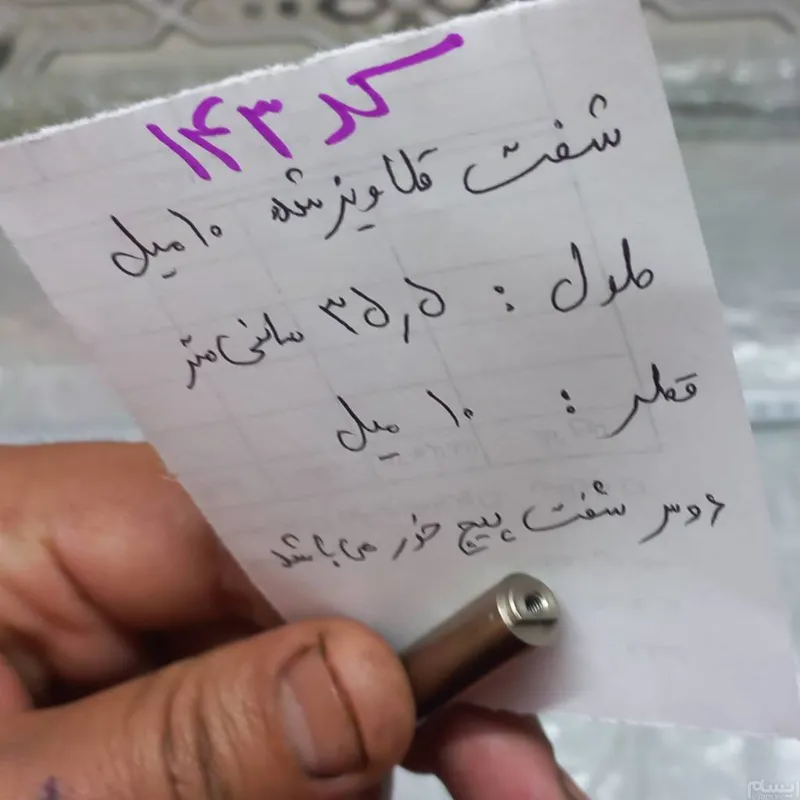 کد ۱۴۳
شفت قلاویز شده ۱۰ میل
طول : ۳۵٫۵ سانتی متر
قطر : ۱۰ میل
دو سر شفت پیچ خور می باشد
ایسام